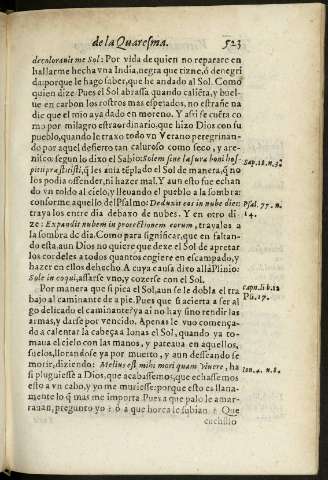 de la Quaresma. 523
decolorauit me Sol: Por vida de quien no repareẽ en
hallarme hecha vna India, negra que tizne, ò denegri
da: porque le hago saber, que he andado al Sol. Como
quien dize. Pues el Sol abrassa quando caliẽta, y buel-
ue en carbon los rostros mas espejados, no estrañe na
die que el mio aya dado en moreno. Y assi se cuẽta co
mo por milagro estraordinario, que hizo Dios con su
pueblo, quando le traxo todo vn Verano peregrinan-
do por aquel desierto tan caluroso como seco, y are-
nisco: segun lo dixo el Sabio: Solem sine lasura boni hos-
pitij præstitisti, q̃ les auia tẽplado el Sol de manera, q̃ no
los podia offender, ni hazer mal. Y aun esto fue echan
do vn toldo al cielo, y lleuando el pueblo a la sombra:
conforme aquello del Psalmo: Deduxit eos in nube diei:
traya los entre dia debaxo de nubes. Y en otro di-
ze: Expandit nubem in protectionem eorum, trayalos a
la sombra de dia. Como para significar, que en faltan-
do esta, aun Dios no quiere que dexe el Sol de apretar
los cordeles a todos quantos cogiere en escampado, y
hazer en ellos de hecho. A cuya causa dixo allà Plinio:
Sole in coqui, assarse vno, y cozerse con el Sol.
Por manera que si pica el Sol, aun se le dobla el tra
bajo al caminante de a pie. Pues que si acierta a ser al
go delicado el caminante? ya ai no hay sino rendir las
armas, y darse por vencido. Apenas le vuo comença-
do a calentar la cabeça a Ionas el Sol, quando ya to-
maua el cielo con las manos, y pateaua en aquellos,
suelos, llorandose ya por muerto, y aun desseando se
morir, diziendo: Melius est mihi mori quam viuere, ha
si pluguiesse a Dios, que acabassemos, que echassemos
esto a vn cabo, y yo me muriesse: porque esto es llana-
mente lo q̃ mas me importa. Pues a que palo le amar-
rauan, pregunto yo? ò a que horca le subian? Que
cuchillo
Sap. 18. n. 3.
Psal. 77. n.
14.
cap. li b. 12
Pli. 17.
Ion. 4. n. 8.